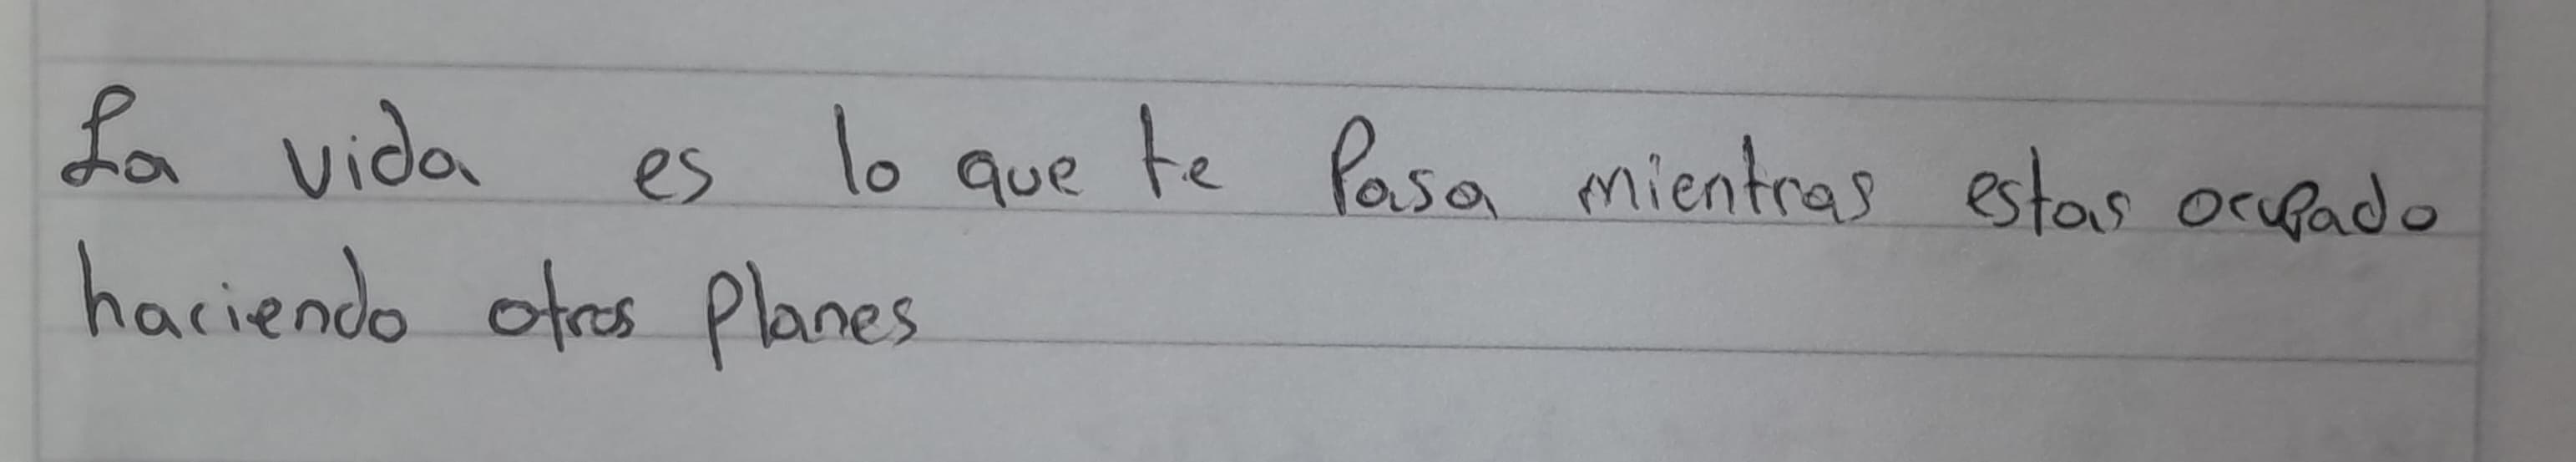 La vida es lo que te Pasa mientras estas ocupado
haciendo otros planes